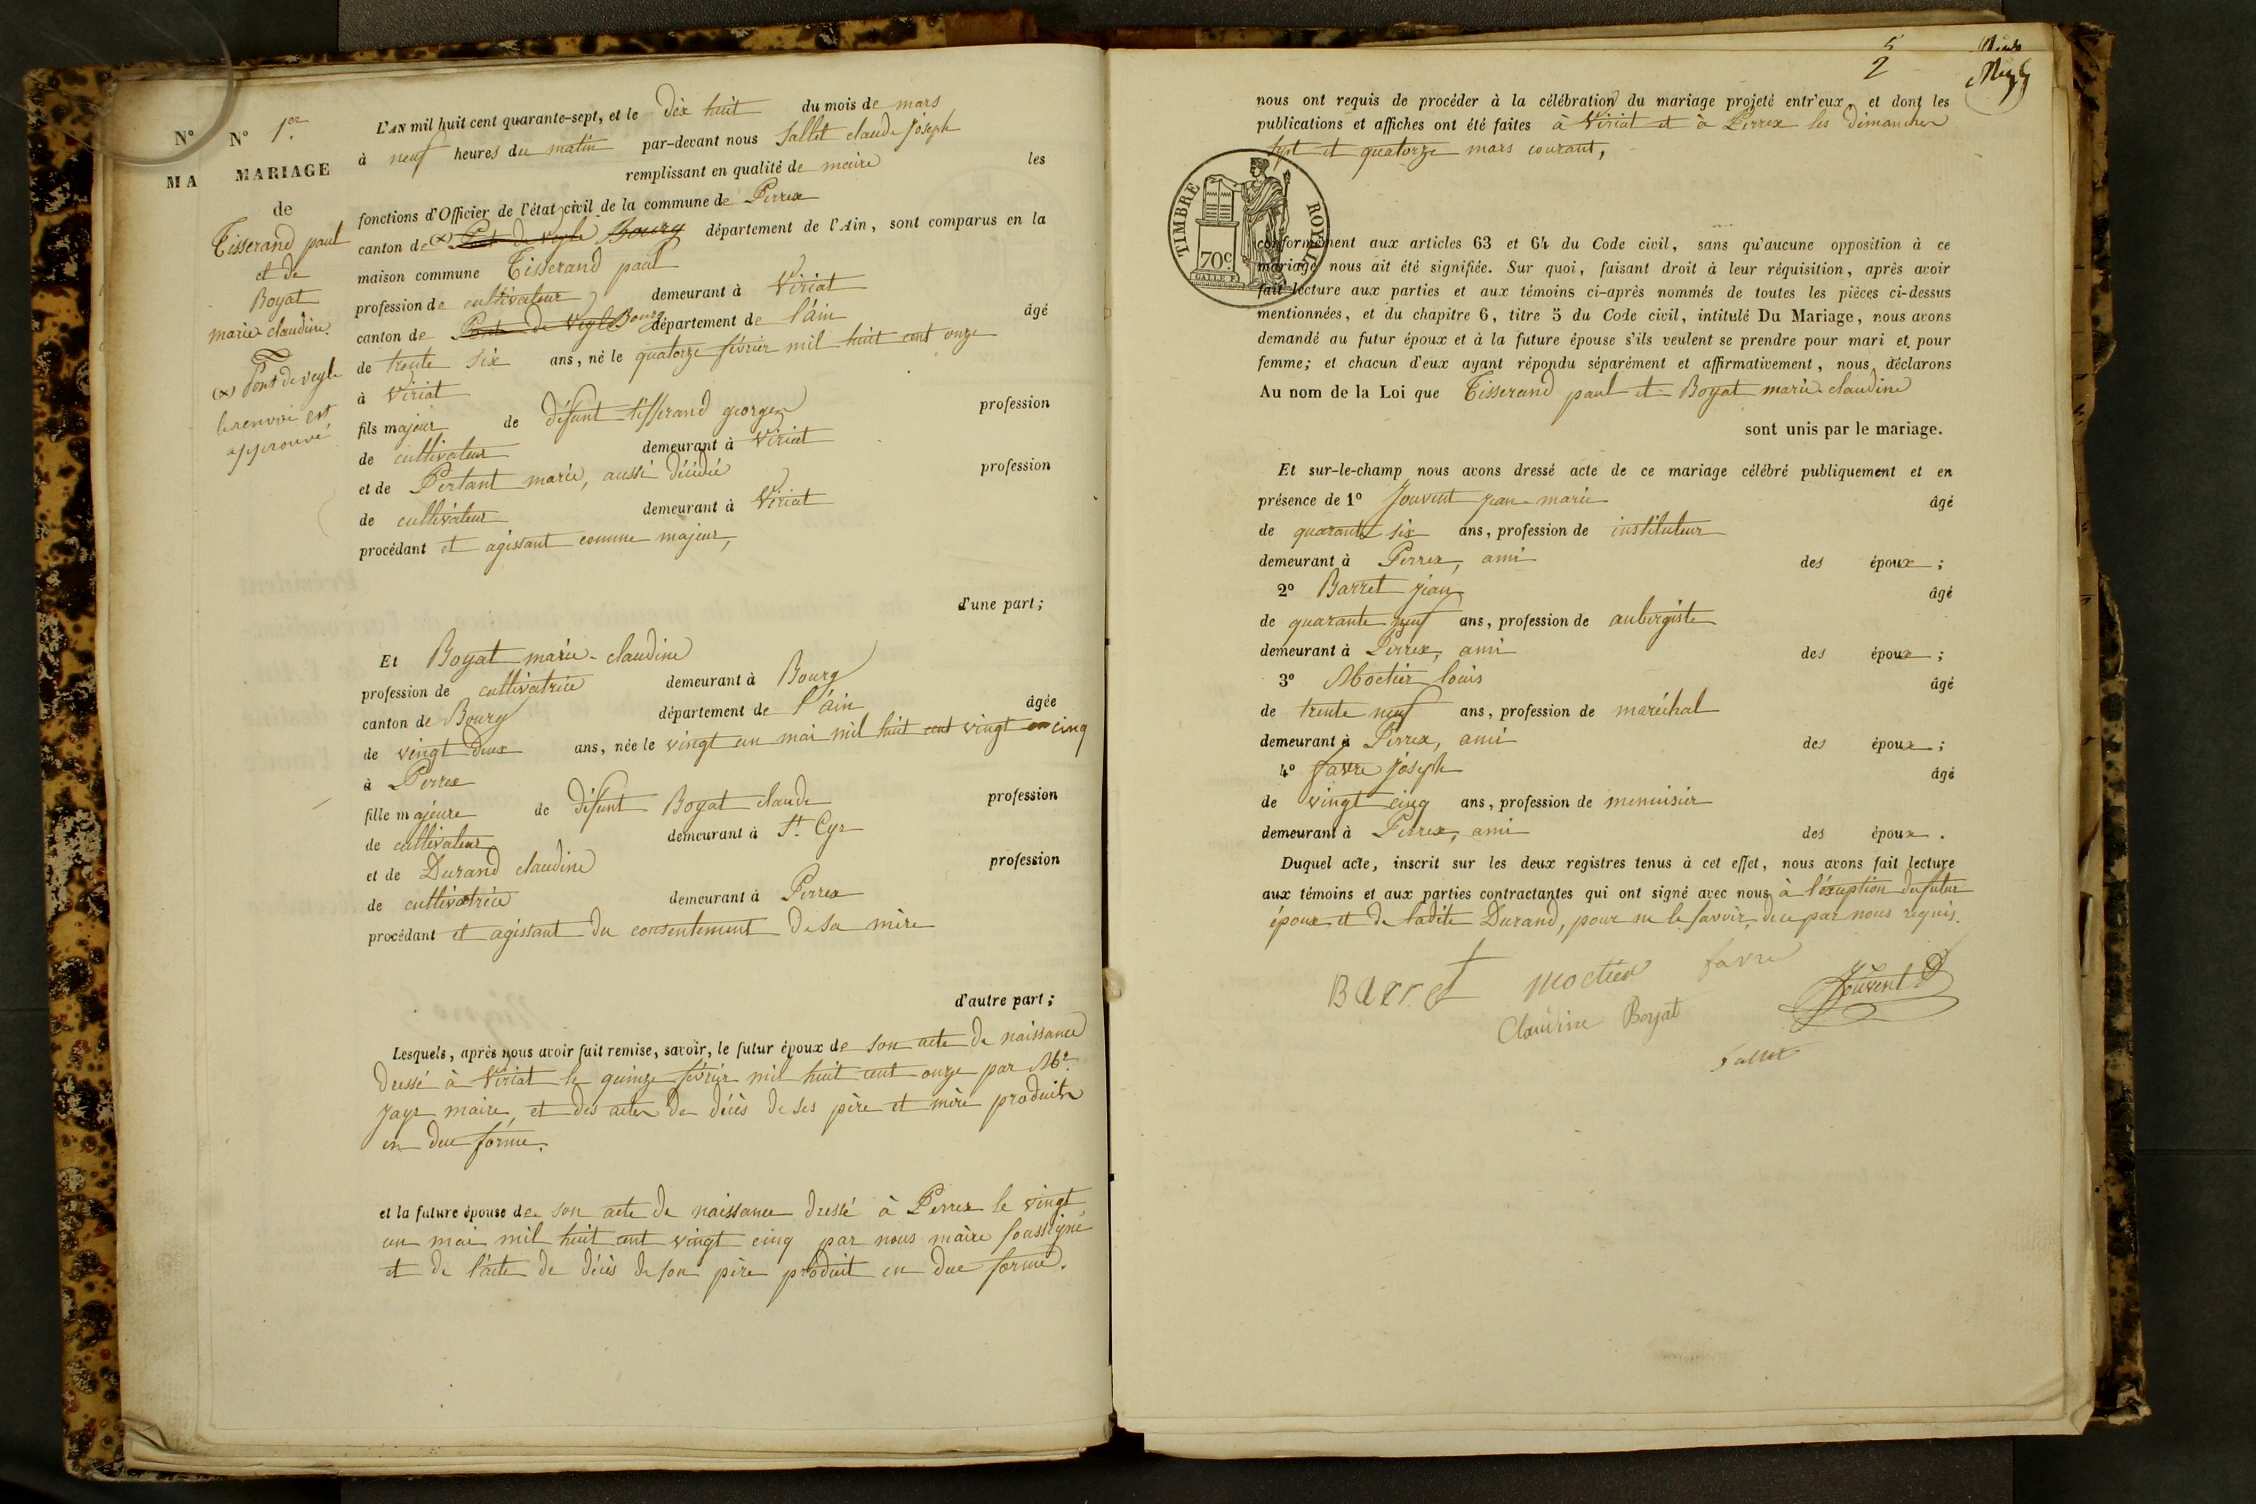 N°
MA
N° 1er
MARIAGE
de
Tisserand paul
et de
Boyat
marie claudine.
(x) Pont de veyle
le renvoi est
approuvé
L'AN mil huit cent quarante-sept, et le dix huit du mois de mars
à neuf heures du matin par-devant nous Sallet claude Joseph
remplissant en qualité de maire les
fonctions d'Officier de l'état civil de la commune de Perrex
canton de (x) Pont de veyle Bourg département de l'Ain, sont comparus en la
maison commune Tisserand paul
profession de cultivateur demeurant à Viriat
canton de Pont de Veyle Bourg département de l'ain âgé
de trente six ans, né le quatorze février mil huit cent onze
à Viriat
fils majeur de défunt tisserand george profession
de cultivateur demeurant à Viriat
et de Pertant marie, aussi décédée profession
de cultivateur demeurant à Viriat
procédant et agissant comme majeur,
d'une part;
Et Boyat marie-claudine
profession de cultivatrice demeurant à Bourg
canton de Bourg département de l'ain âgée
de vingt deux ans, née le vingt un mai mil huit cent vingt cinq
à Perrex
fille majeure de défunt Boyat claude profession
de cultivateur demeurant à St. Cyr
et de Durand claudine profession
de cultivatrice demeurant à Perrex
procédant et agissant du consentement de sa mère
d'autre part;
Lesquels, après nous avoir fait remise, savoir, le futur époux de son acte de naissance
dressé à Viriat le quinze février mil huit cent onze par Mr.
Jayr maire, et des actes de décès de ses père et mère produits
en due forme.
et la future épouse de son acte de naissance dressé à Perrex le vingt
un mai mil huit cent vingt cinq par nous maire soussigné
et de l'acte de décès de son père produit en due forme.
5
2
nous ont requis de procéder à la célébration du mariage projeté entr'eux, et dont les
publications et affiches ont été faites à Viriat et à Perrex les dimanches
sept et quatorze mars courant,
TIMBRE ROYAL
70c
conformément aux articles 63 et 64 du Code civil, sans qu'aucune opposition à ce
mariage nous ait été signifiée. Sur quoi, faisant droit à leur réquisition, après avoir
fait lecture aux parties et aux témoins ci-après nommés de toutes les pièces ci-dessus
mentionnées, et du chapitre 6, titre 5 du Code civil, intitulé Du Mariage, nous avons
demandé au futur époux et à la future épouse s'ils veulent se prendre pour mari et pour
femme; et chacun d'eux ayant répondu séparément et affirmativement, nous déclarons
Au nom de la Loi que Tisserand paul et Boyat marie-claudine
sont unis par le mariage.
Et sur-le-champ nous avons dressé acte de ce mariage célébré publiquement et en
présence de 1° Jouvent jean-marie âgé
de quarante six ans, profession de instituteur
demeurant à Perrex, ami des époux ;
2° Barret jean âgé
de quarante neuf ans, profession de aubergiste
demeurant à Perrex, ami des époux ;
3° Moctier louis âgé
de trente neuf ans, profession de maréchal
demeurant à Perrex, ami des époux ;
4° favre Joseph âgé
de vingt cinq ans, profession de menuisier
demeurant à Perrex, ami des époux .
Duquel acte, inscrit sur les deux registres tenus à cet effet, nous avons fait lecture
aux témoins et aux parties contractantes qui ont signé avec nous, à l'exception du futur
époux et de ladite Durand, pour ne le savoir, de ce par nous requis.
Barret moctier favre
Jouvent
Claudine Boyat
Sallet